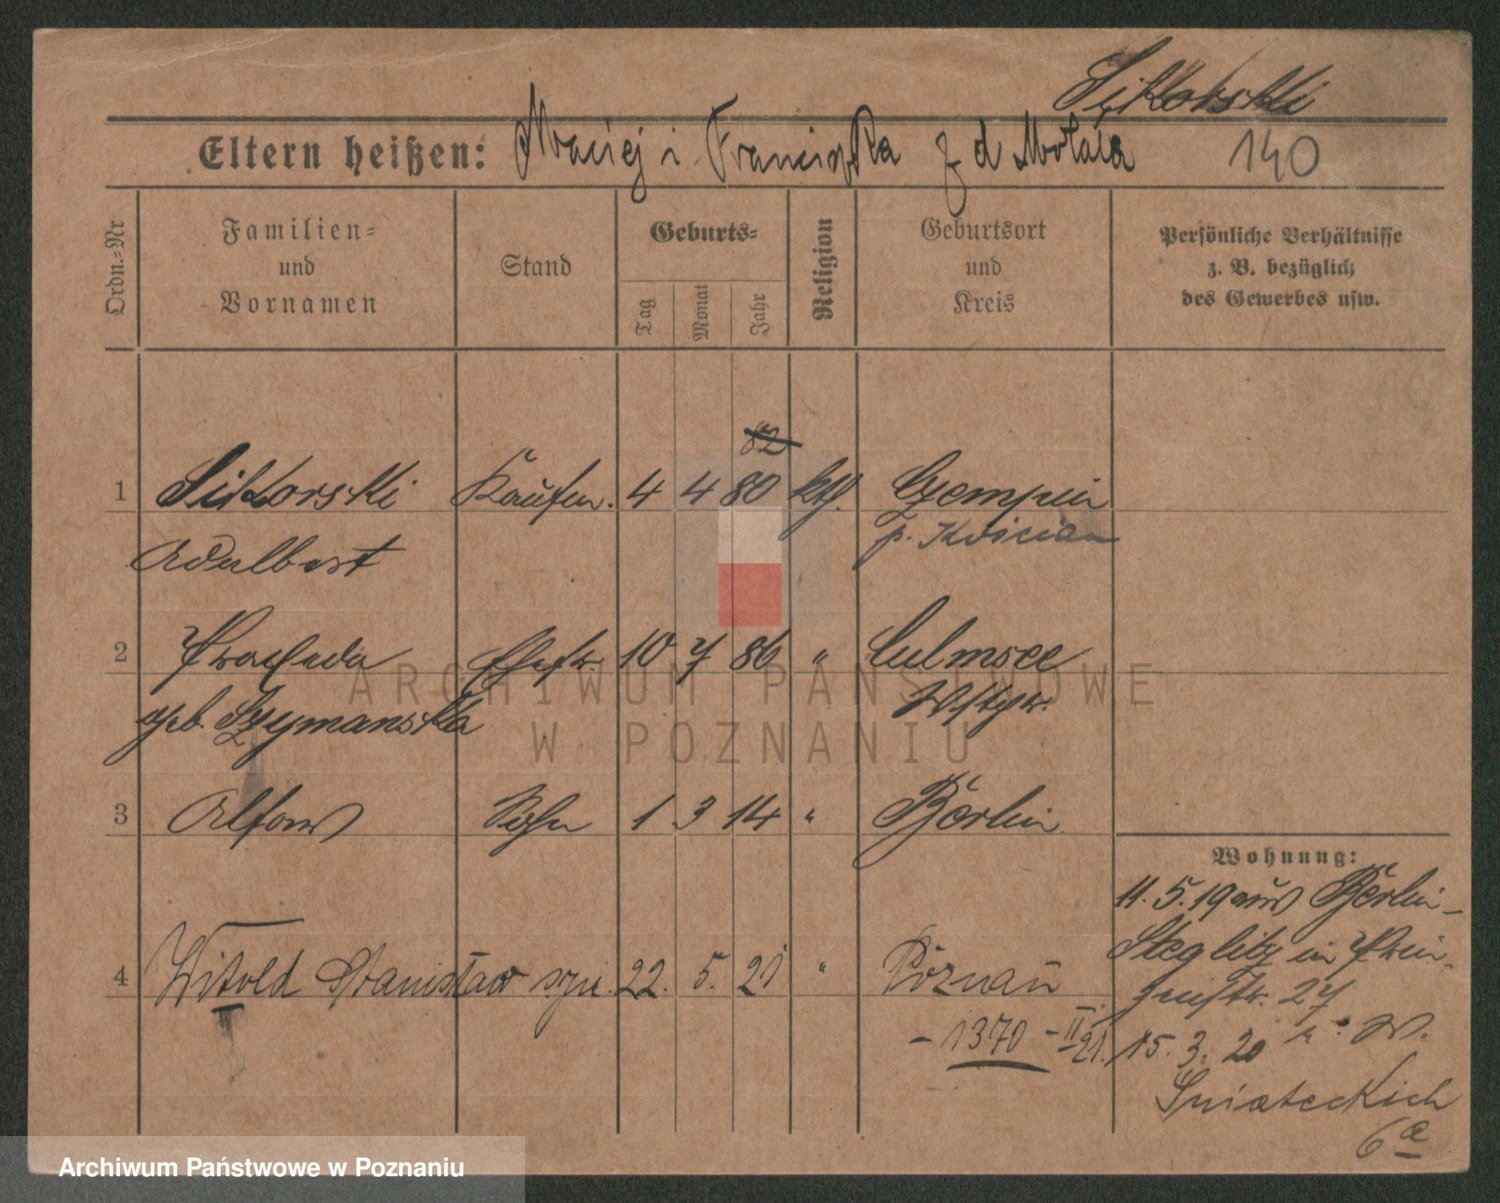 Sikorski
Eltern heißen: Maciej i Franciszka z d Mołata
140
Ordn.-Nr
Familien-
und
Vornamen
Stand
Geburts-
Tag
Monat
Jahr
Religion
Geburtsort
und
Kreis
Persönliche Verhältnisse
z. B. bezüglich
des Gewerbes usw.
82
1 Sikorski Kaufm. 4 4 80 kth. Czempin
Adalbert p. Kościan
2 Praxeda Ehefr. 10 7 86 " Culmsee
geb. Szymanska Wstpr.
3 Alfons Sohn 1 3 14 " Berlin
Wohnung:
11.5.19 aus Berlin-
Steglitz in Prin-
zenstr. 27
4 Witold Stanisław syn. 22. 5. 21 " Poznań
- 1370 - II 21.
15. 3. 20 n. W.
Sniateckich
6a
ARCHIWUM PAŃSTWOWE
W POZNANIU
Archiwum Państwowe w Poznaniu